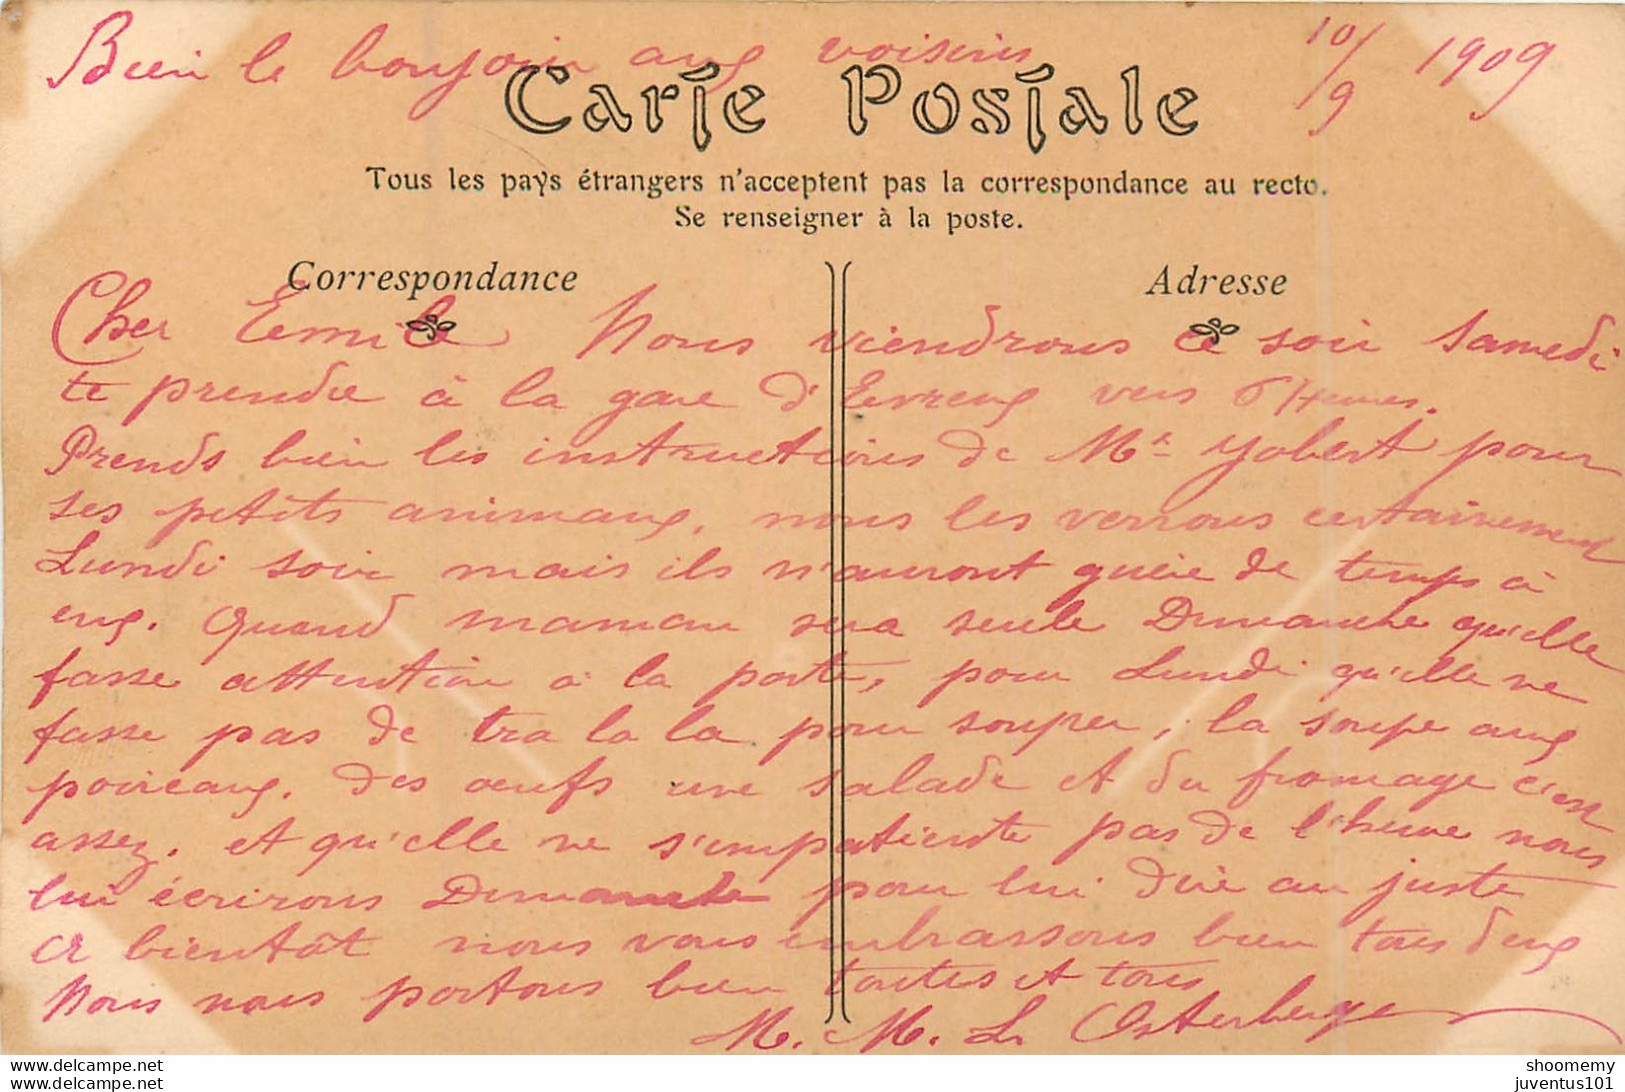 Bien le boujour aux voisins 10/9 1909
Carte Postale
Tous les pays étrangers n'acceptent pas la correspondance au recto.
Se renseigner à la poste.
Correspondance Adresse
Cher Emile Nous viendrons ce soir Samedi
te prendre à la gare d'Evreux vers 6 Heures.
Prends bien les instructions de Mr Yobert pour
ses petits animaux, nous les verrons certainement
Lundi soir mais ils n'auront guère de temps à
eux. Quand maman sera seule Dimanche qu'elle
fasse attention à la porte, pour Lundi qu'elle ne
fasse pas de tra la la pour souper, la soupe aux
poireaux, des oeufs une salade et du fromage c'est
assez. et qu'elle ne s'impatiente pas de l'heure nous
lui écrirons Dimanche pour lui dire au juste
A bientôt nous vous embrassons bien tous deux
Nous nous portons bien toutes et tous
M. M. L. Osterberger
shoomemy
juventus101